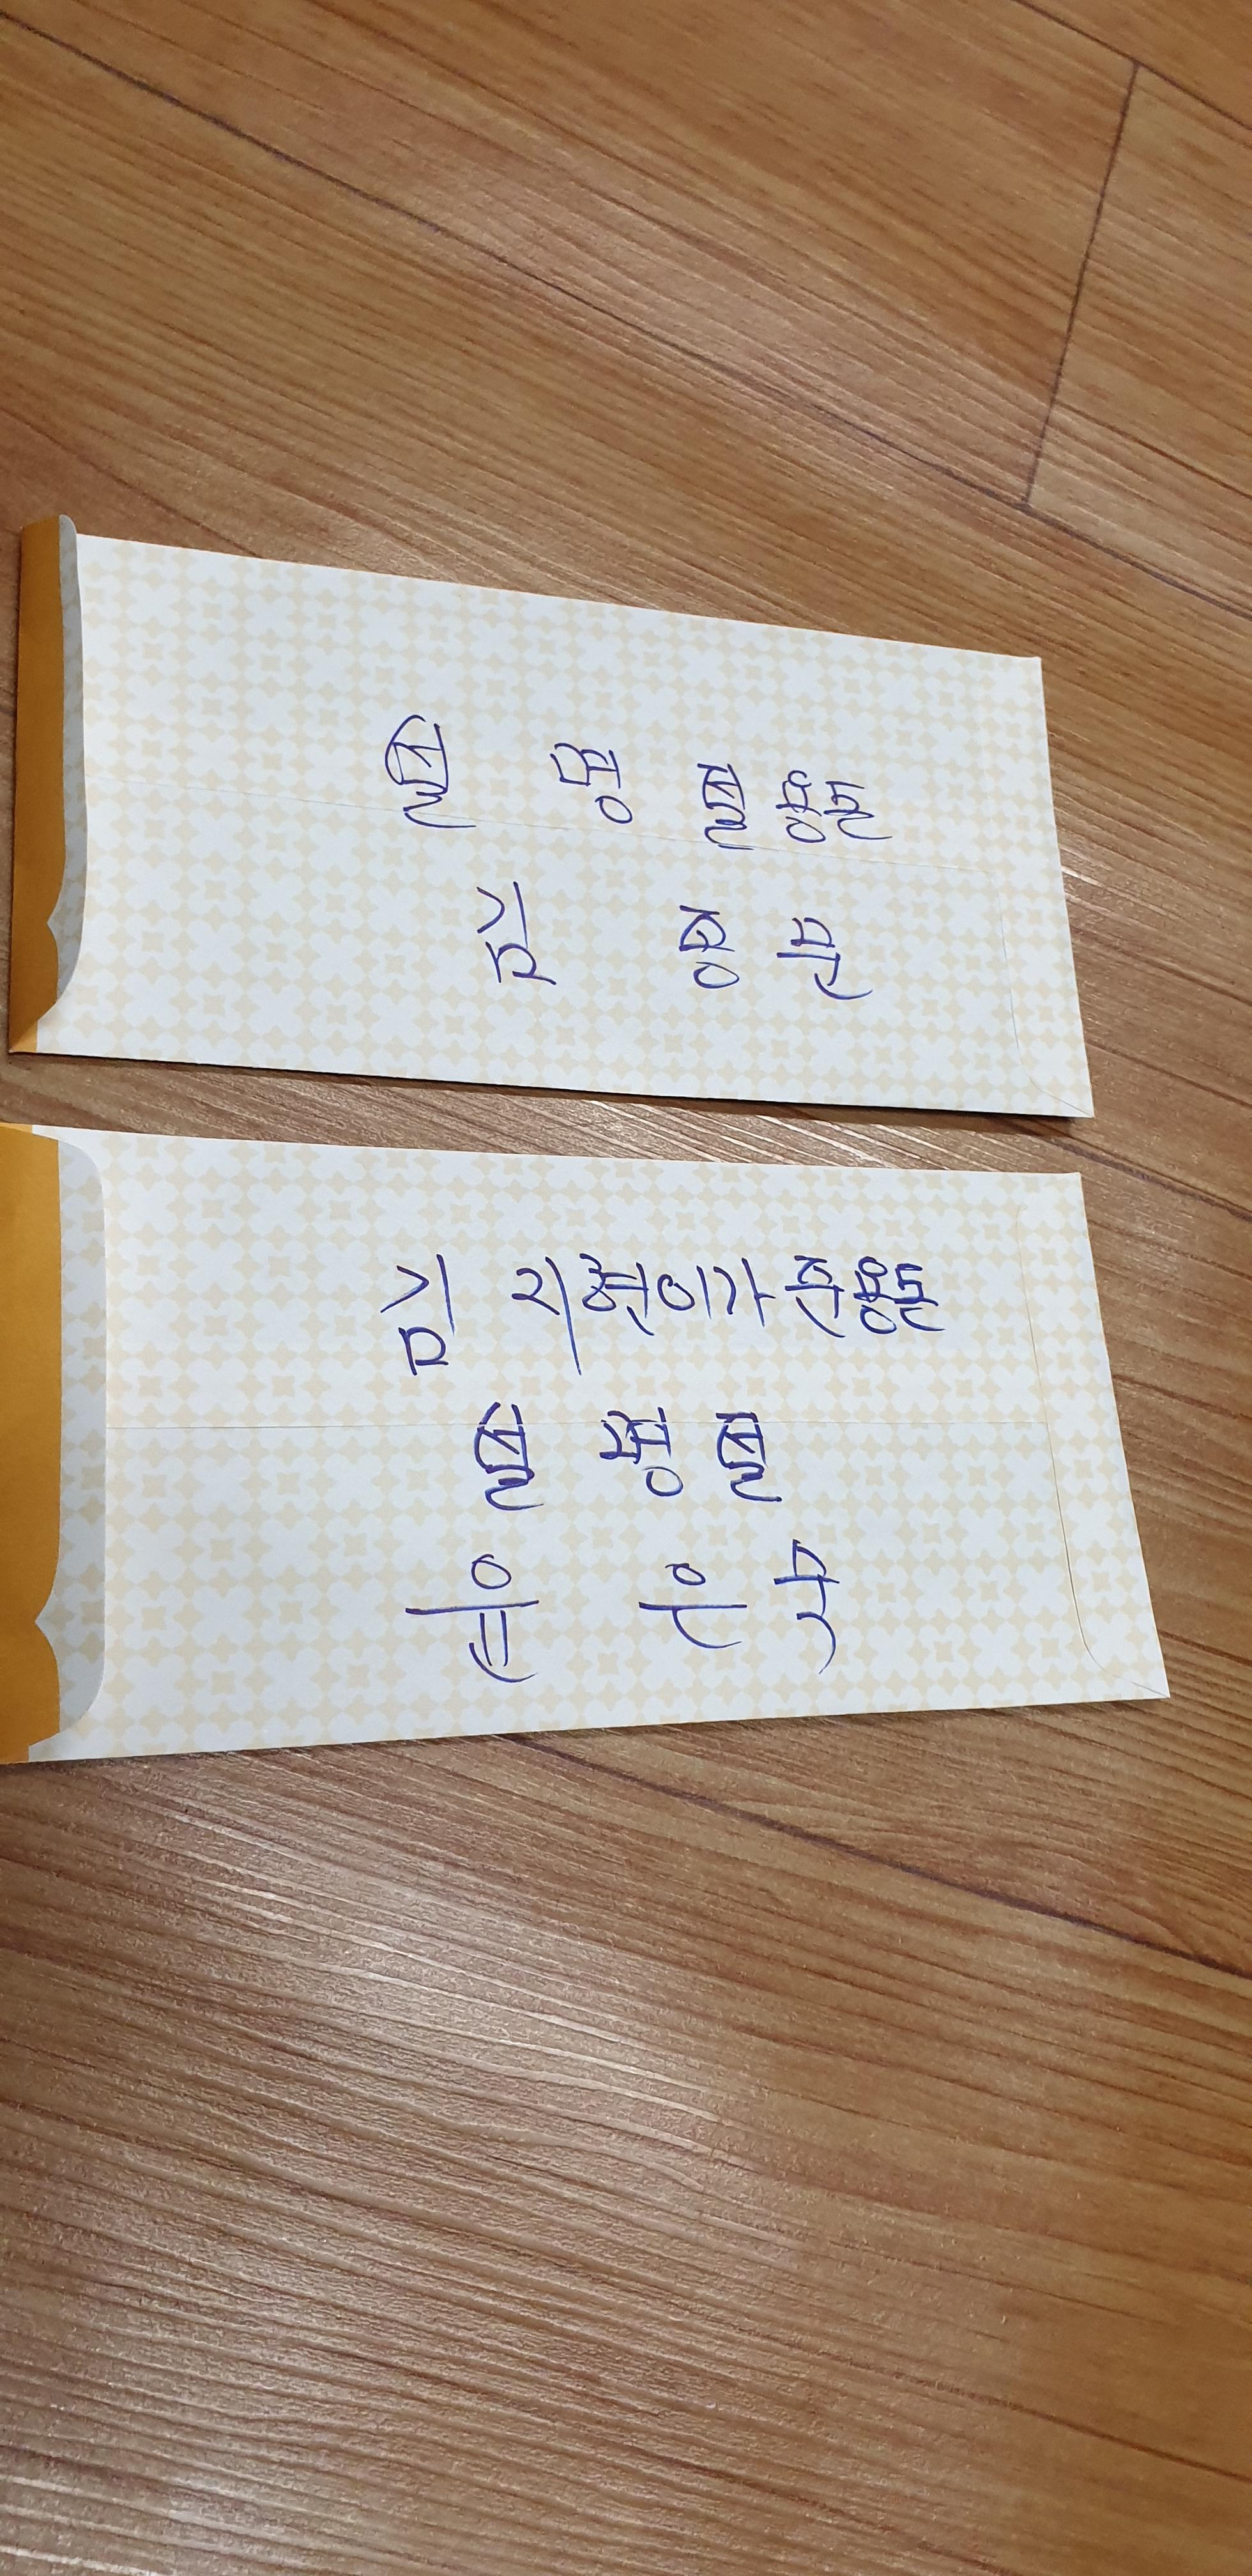 설 명 절용돈
김 종 문
김 지현이가 준용돈
설 명 절
윤 은